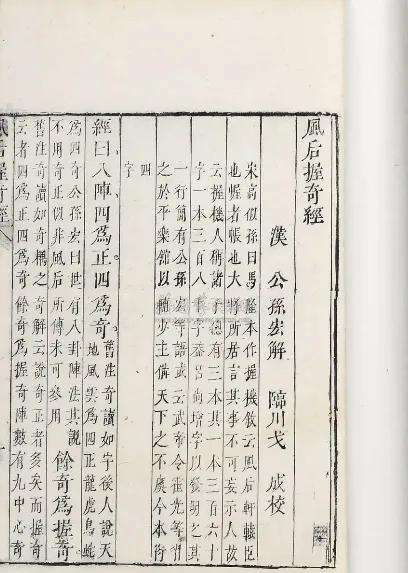 風后握奇經
漢 公孫宏解 臨川戈 成校
宋高似孫曰馬隆本作握機敘云風后軒轅臣
也握者帳也大將所居言其事不可妄示人故
云握機人稱諸總有三本其一本三百六十
字一本三百八十字葢呂尚增字以發明之其
一行簡有公孫宏等語或云武帝令霍光等習
之於平樂館以輔少主備天下之不虞今本衍
四
字
經曰八陣四爲正四爲奇舊注奇讀如字後人說天
地風雲爲四正龍虎鳥蛇
爲四奇公孫宏曰世有八卦陣法其說
不用奇正似非風后所傳未可參用餘奇爲握奇
舊注奇讀如奇耦之奇解云說奇正者多矣而握奇
云者四爲正四爲奇餘奇爲握奇陣數有九中心奇
風后握奇經